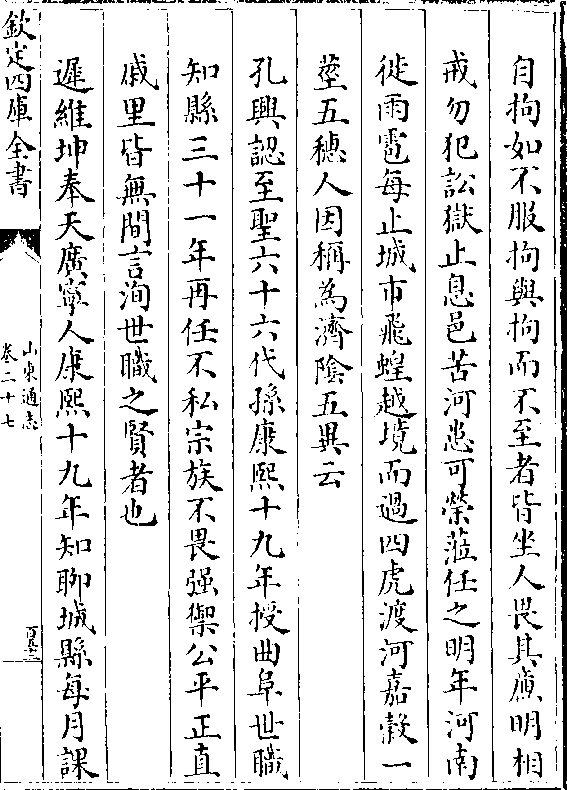 自拘如不服拘與拘而不至者皆坐人畏其廉明相
戒勿犯訟獄止息邑苦河患可榮蒞任之明年河南
徙雨雹每止城市飛蝗越境而過四虎渡河嘉榖一
莖五穗人因稱為濟隂五異云
孔興認至聖六十六代孫康熙十九年授曲阜世職
知縣三十一年再任不私宗族不畏强禦公平正直
戚里皆無間言洵世職之賢者也
遲維坤奉天廣寧人康熙十九年知聊城縣每月課
欽定四庫全書
山東通志
卷二十七